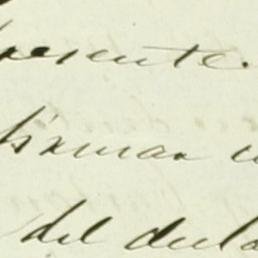 presente.
firman
del decla